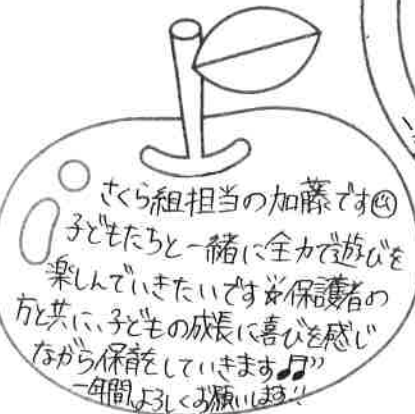 さくら組担当の加藤です☺
子どもたちと一緒に全力で遊びを
楽しんでいきたいです☆保護者の
方と共に、子どもの成長に喜びを感じ
ながら保育をしていきます🎵
一年間よろしくお願いします!!